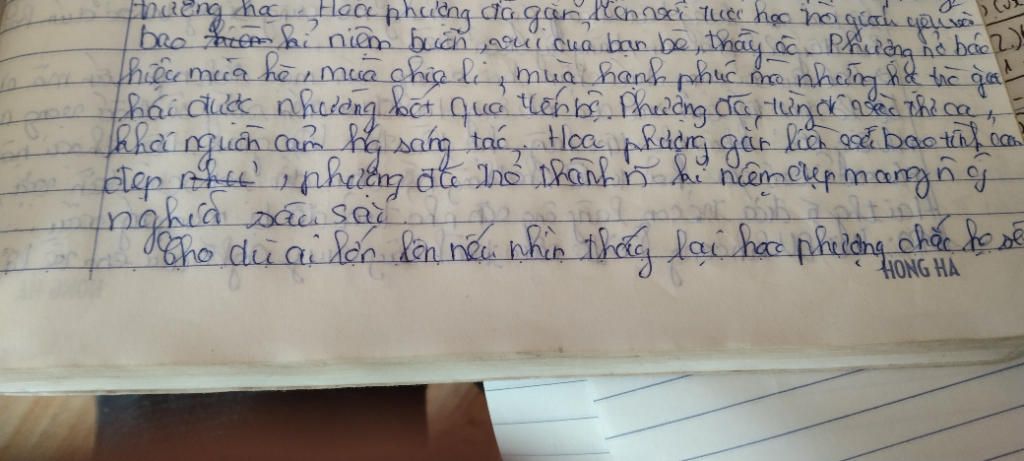 thường học. Hoa phượng đã gắn liền với tuổi học trò
bao kỉ niệm buồn, vui của bạn bè, thầy cô. Phượng nở báo
hiệu mùa hè, mùa chia li, mùa hạnh phúc mà những
hái được những kết quả tiến bộ. Phượng đã từng đi vào thi ca,
khơi nguồn cảm hg sáng tác. Hoa phượng gắn liền với bao tình cảm
đẹp, phượng đã trở thành n~ kỉ niệm đẹp mang n~ ý
nghĩa sâu sắc
Cho dù ai lớn lên nếu nhìn thấy lại hoa phượng chắc họ sẽ
HONG HA